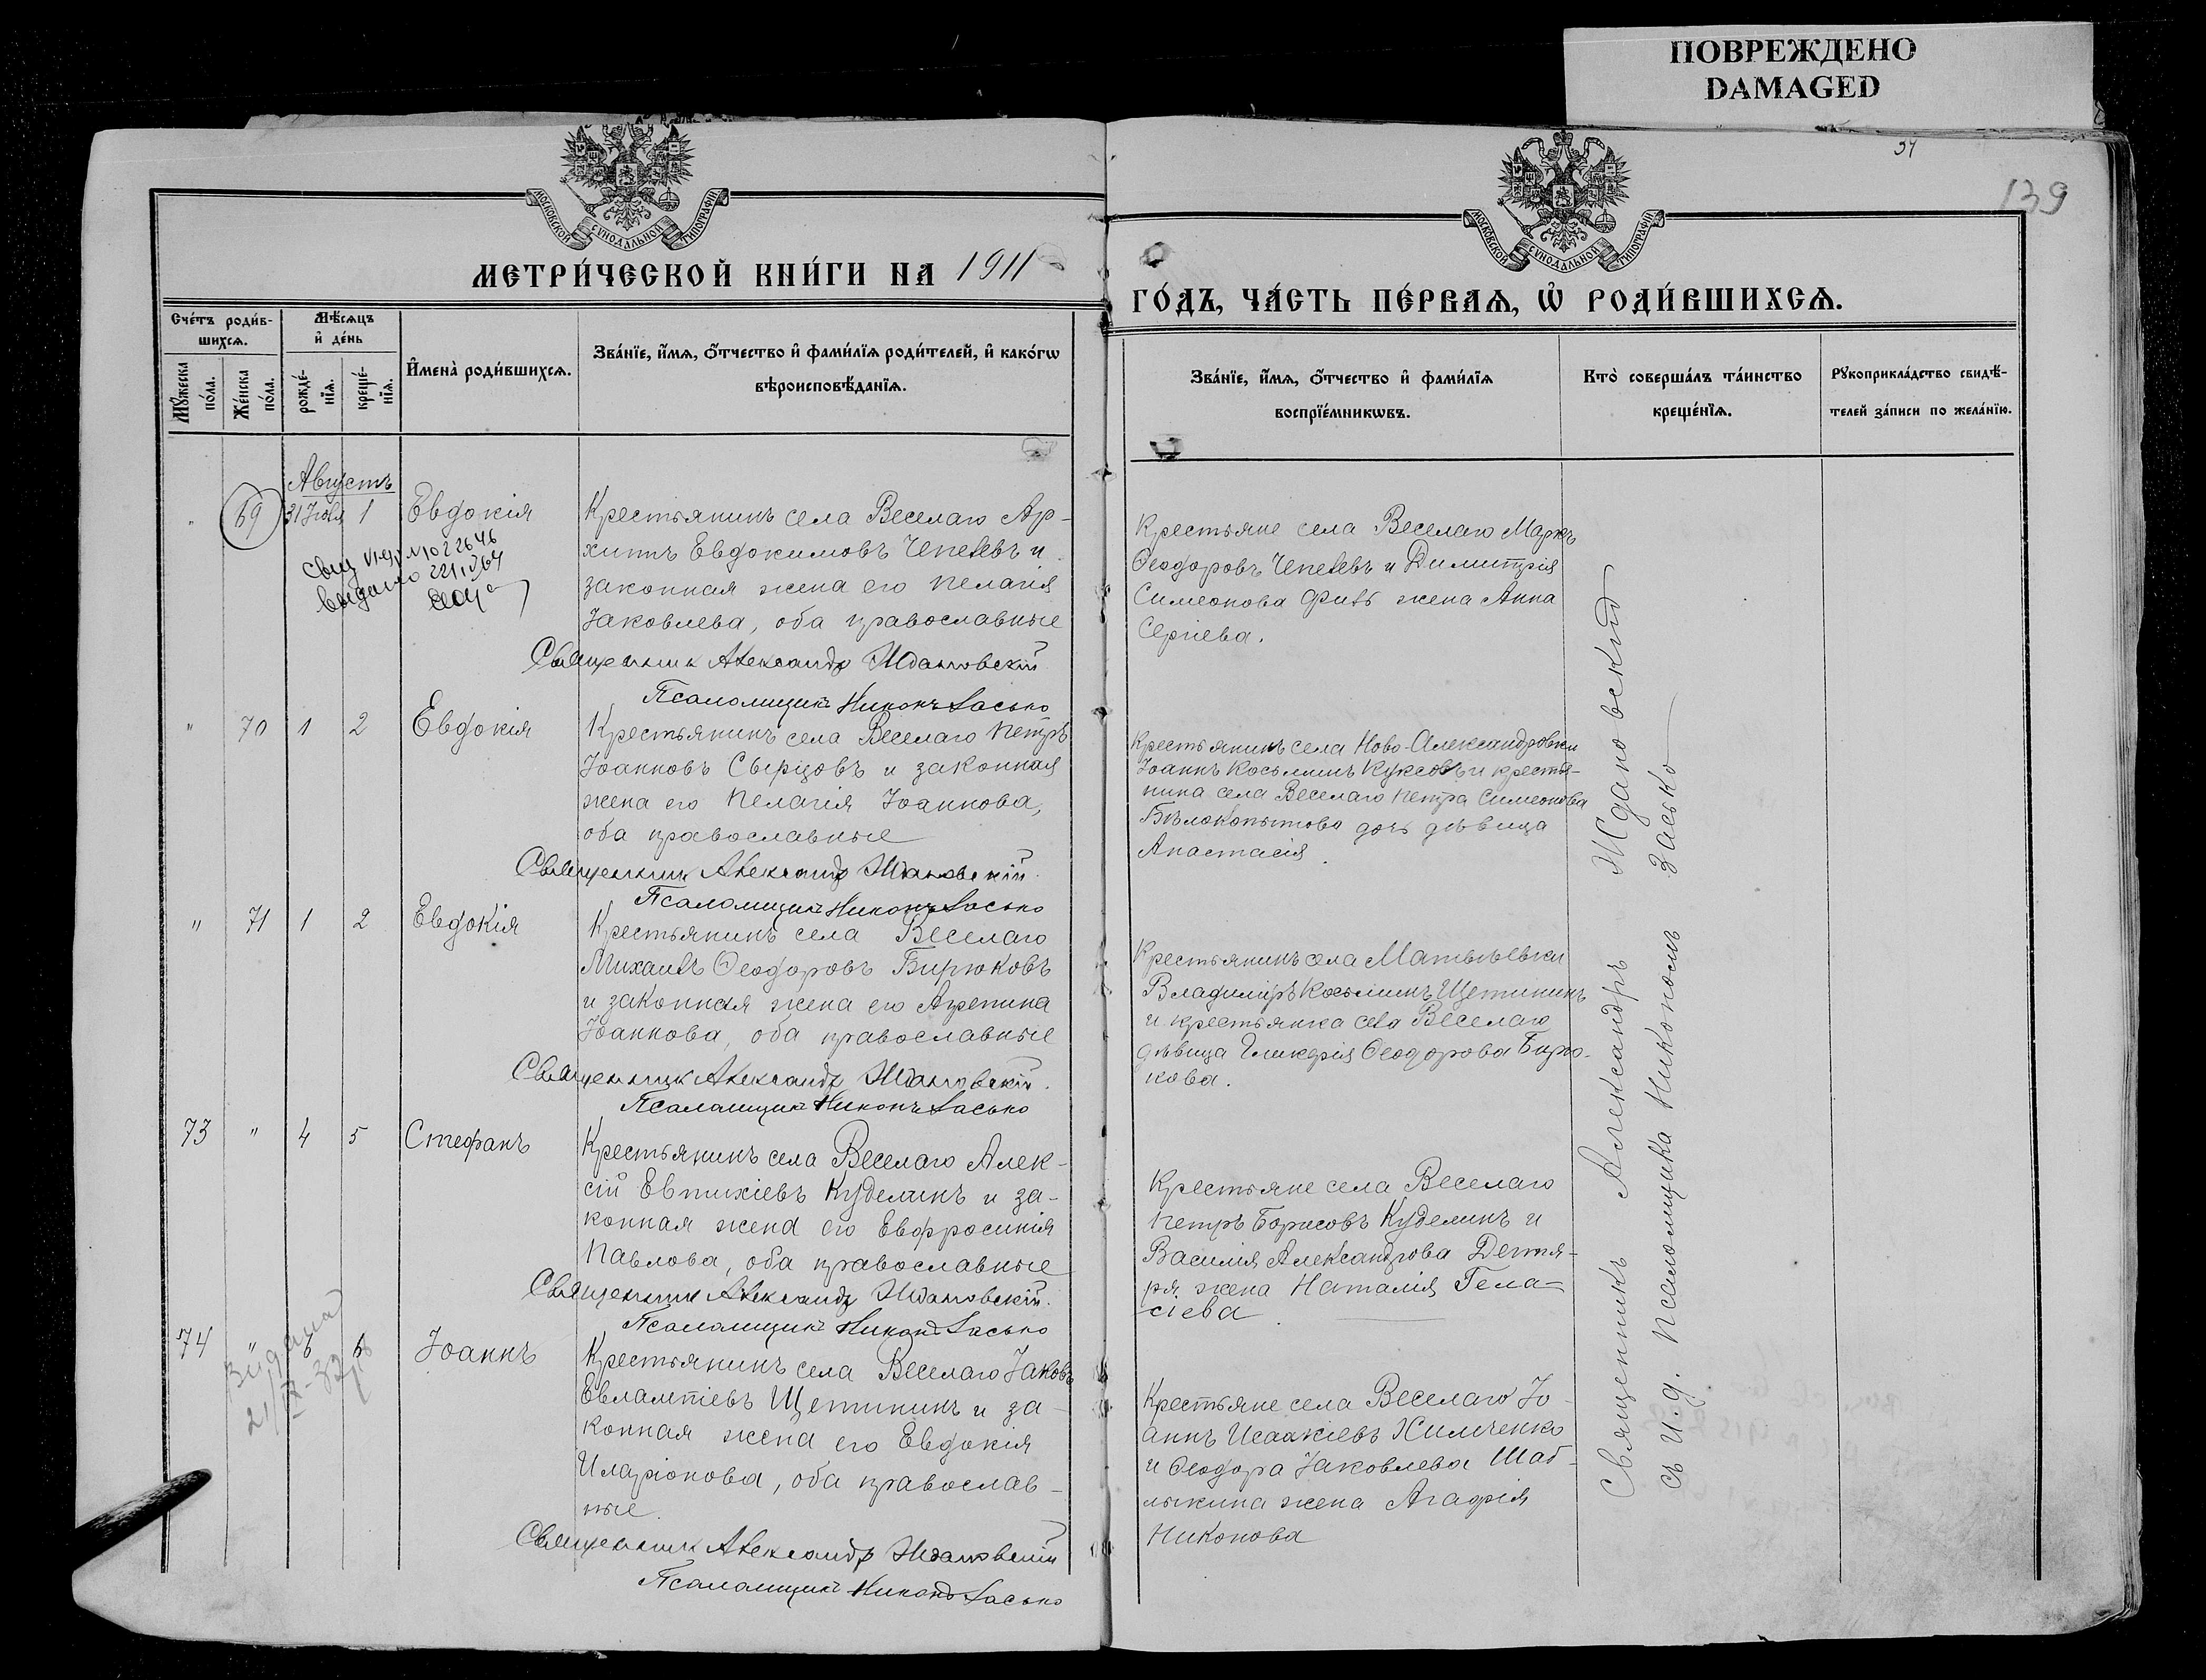 ПОВРЕЖДЕНО
DAMAGED
34
139
МОСКОВСКОЙ СѴНОДАЛЬНОЙ ТИПОГРАФІИ
МОСКОВСКОЙ СѴНОДАЛЬНОЙ ТИПОГРАФІИ
МЕТРИ́ЧЕСКОЙ КНИ́ГИ НА 1911
ГО́ДЪ, ЧА́СТЬ ПЕ́РВАѦ, Ѽ РОДИ́ВШИХСѦ.
Сче́тъ роди́в-
шихсѧ.
Мꙋ́жеска
по́ла.
Же́нска
по́ла.
Мѣ́сѧцъ
и҆ де́нь
рожде́-
нїѧ.
креще́-
нїѧ.
И҆мена̀ роди́вшихсѧ.
Зва́нїе, и҆́мѧ, ѻ҆́тчество и҆ фами́лїѧ роди́телей, и҆ како́гѡ
вѣроисповѣ́данїѧ.
Зва́нїе, и҆́мѧ, ѻ҆́тчество и҆ фами́лїѧ
воспрїе́мникѡвъ.
Кто̀ соверша́лъ та́инство
креще́нїѧ.
Рꙋкоприкла́дство свидѣ́-
телей за́писи по жела́нїю.
Августъ
" 69 31 Іюля 1 Евдокія
Крестьянинъ села Веселаго Ар-
хиппъ Евдокимовъ Чепелевъ и
законная жена его Пелагія
Іаковлева, оба православные
Священникъ Александръ Ждановскій
Псаломщикъ Никонъ Засько
Крестьяне села Веселаго Маркъ
Ѳеодоровъ Чепелевъ и Димитрія
Симеонова Филь жена Анна
Сергіева.
" 70 1 2 Евдокія
Крестьянинъ села Веселаго Петръ
Іоанновъ Сырцовъ и законная
жена его Пелагія Іоаннова,
оба православные
Священникъ Александръ Ждановскій
Псаломщикъ Никонъ Засько
Крестьянинъ села Ново-Александровки
Іоаннъ Косьминъ Куксовъ и крестья-
нина села Веселаго Петра Симеонова
Бѣлокопытова дочь дѣвица
Анастасія.
" 71 1 2 Евдокія
Крестьянинъ села Веселаго
Михаилъ Ѳеодоровъ Бирюковъ
и законная жена его Агрепина
Іоаннова, оба православные
Священникъ Александръ Ждановскій.
Псаломщикъ Никонъ Засько
Крестьянинъ села Матвѣевки
Владиміръ Косьминъ Щетининъ
и крестьянка села Веселаго
дѣвица Гликерія Ѳеодорова Бирю-
кова.
73 " 4 5 Стефанъ
Крестьянинъ села Веселаго Алек-
сій Евтихіевъ Куделинъ и за-
конная жена его Евфросинія
Павлова, оба православные
Священникъ Александръ Ждановскій.
Псаломщикъ Никонъ Засько
Крестьяне села Веселаго
Петръ Борисовъ Куделинъ и
Василія Александрова Дегтя-
ря жена Наталія Гела-
сіева.
74 " 6 6 Іоаннъ
Видана
Крестьянинъ села Веселаго Іаковъ
Евлампіевъ Щетининъ и за-
конная жена его Евдокія
Иларіонова, оба православ-
ные.
Священникъ Александръ Ждановскій
Псаломщикъ Никонъ Засько
Крестьяне села Веселаго Іо-
аннъ Исаакіевъ Химченко
и Ѳеодора Іаковлева Шаб-
лыкина жена Агафія
Никонова
Священникъ Александръ Ждановскій
съ И. д. Псаломщика Никономъ Засько